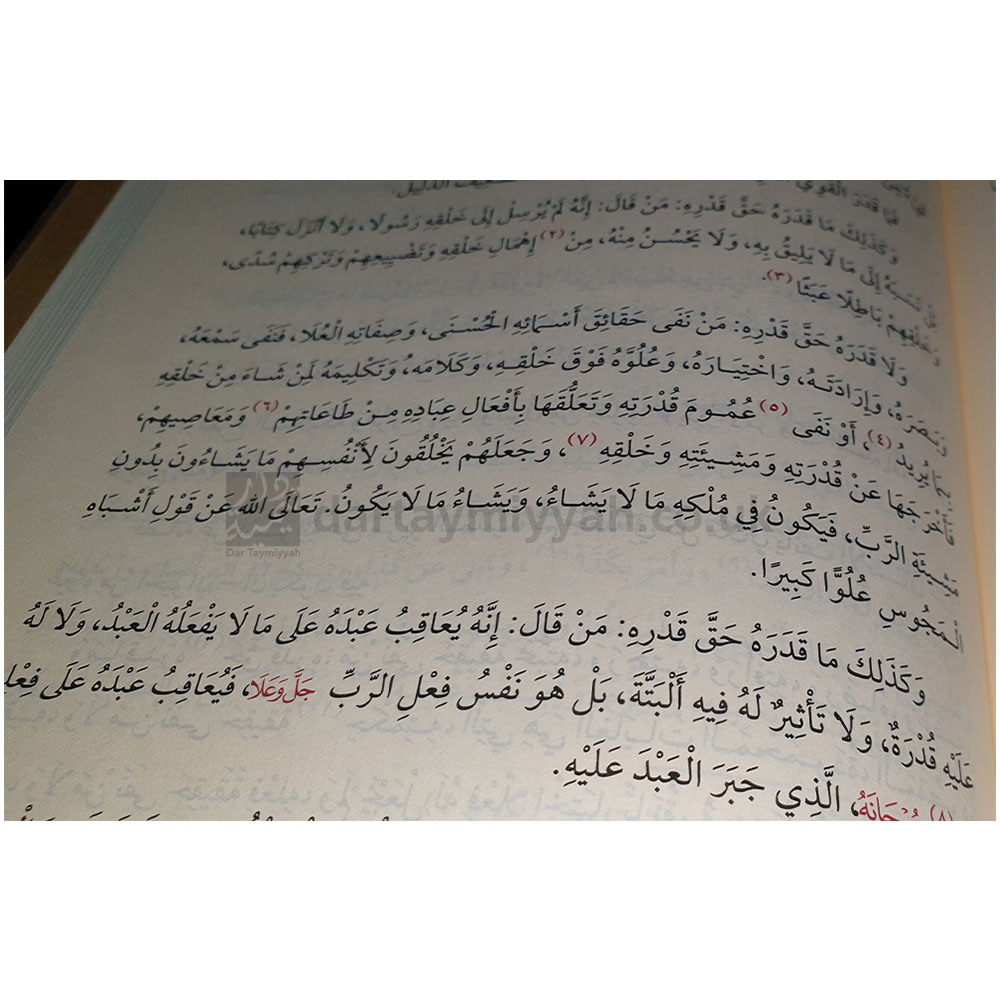 فَمَا قَدَرَ الْقَوِيَّ
وَكَذَلِكَ مَا قَدَرَهُ حَقَّ قَدْرِهِ: مَنْ قَالَ: إِنَّهُ لَمْ يُرْسِلْ إِلَى خَلْقِهِ رَسُولًا، وَلَا أَنْزَلَ كِتَابًا،
نَسَبَهُ إِلَى مَا لَا يَلِيقُ بِهِ، وَلَا يَحْسُنُ مِنْهُ، مِنْ (٢) إِهْمَالِ خَلْقِهِ وَتَضْيِيعِهِمْ وَتَرْكِهِمْ سُدًى،
وَخَلْقِهِمْ بَاطِلًا عَبَثًا (٣).
وَلَا قَدَرَهُ حَقَّ قَدْرِهِ: مَنْ نَفَى حَقَائِقَ أَسْمَائِهِ الْحُسْنَى، وَصِفَاتِهِ الْعُلَا، فَنَفَى سَمْعَهُ،
وَبَصَرَهُ، وَإِرَادَتَهُ، وَاخْتِيَارَهُ، وَعُلُوَّهُ فَوْقَ خَلْقِهِ، وَكَلَامَه، وَتَكْلِيمَهُ لِمَنْ شَاءَ مِنْ خَلْقِهِ
بِمَا يُرِيدُ (٤)، أَوْ نَفَى (٥) عُمُومَ قُدْرَتِهِ وَتَعَلُّقَهَا بِأَفْعَالِ عِبَادِهِ مِنْ طَاعَاتِهِمْ (٦) وَمَعَاصِيهِمْ،
فَأَخْرَجَهَا عَنْ قُدْرَتِهِ وَمَشِيئَتِهِ وَخَلْقِهِ (٧)، وَجَعَلَهُمْ يَخْلُقُونَ لِأَنْفُسِهِمْ مَا يَشَاءُونَ بِدُونِ
مَشِيئَةِ الرَّبِّ، فَيَكُونُ فِي مُلْكِهِ مَا لَا يَشَاءُ، وَيَشَاءُ مَا لَا يَكُونُ. تَعَالَى اللهُ عَنْ قَوْلِ أَشْبَاهِ
الْمَجُوسِ عُلُوًّا كَبِيرًا.
وَكَذَلِكَ مَا قَدَرَهُ حَقَّ قَدْرِهِ: مَنْ قَالَ: إِنَّهُ يُعَاقِبُ عَبْدَهُ عَلَى مَا لَا يَفْعَلُهُ الْعَبْدُ، وَلَا لَهُ
عَلَيْهِ قُدْرَةٌ، وَلَا تَأْثِيرٌ لَهُ فِيهِ أَلْبَتَّةَ، بَلْ هُوَ نَفْسُ فِعْلِ الرَّبِّ جَلَّ وَعَلَا، فَيُعَاقِبُ عَبْدَهُ عَلَى فِعْلِ
(٨)، الَّذِي جَبَرَ الْعَبْدَ عَلَيْهِ.
Dar Taymiyyah
dartaymiyyah.co.uk